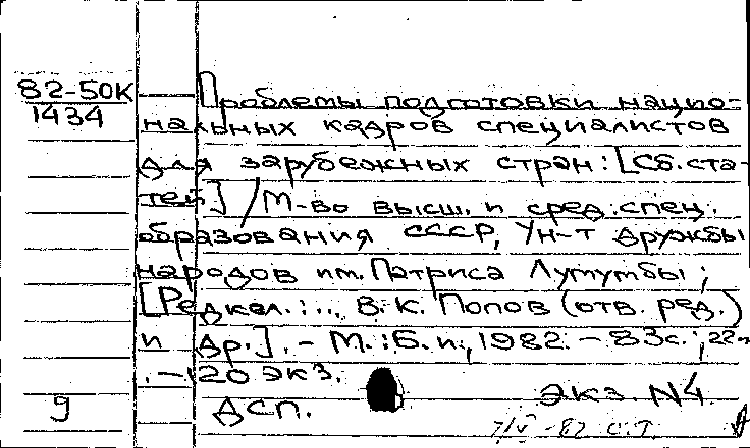 82-50К
1434
Проблемы подготовки нацио-
нальных кадров специалистов
для зарубежных стран: [Сб. ста-
тей] / М-во высш. и сред. спец.
образования СССР, Ун-т дружбы
народов им. Патриса Лумумбы;
[Редкол.: ... В. К. Попов (отв. ред.)
и др.]. - М.: Б. и., 1982. - 83с.; 22
. - 120 экз.
9
ДСП.
Экз. N4.
-82